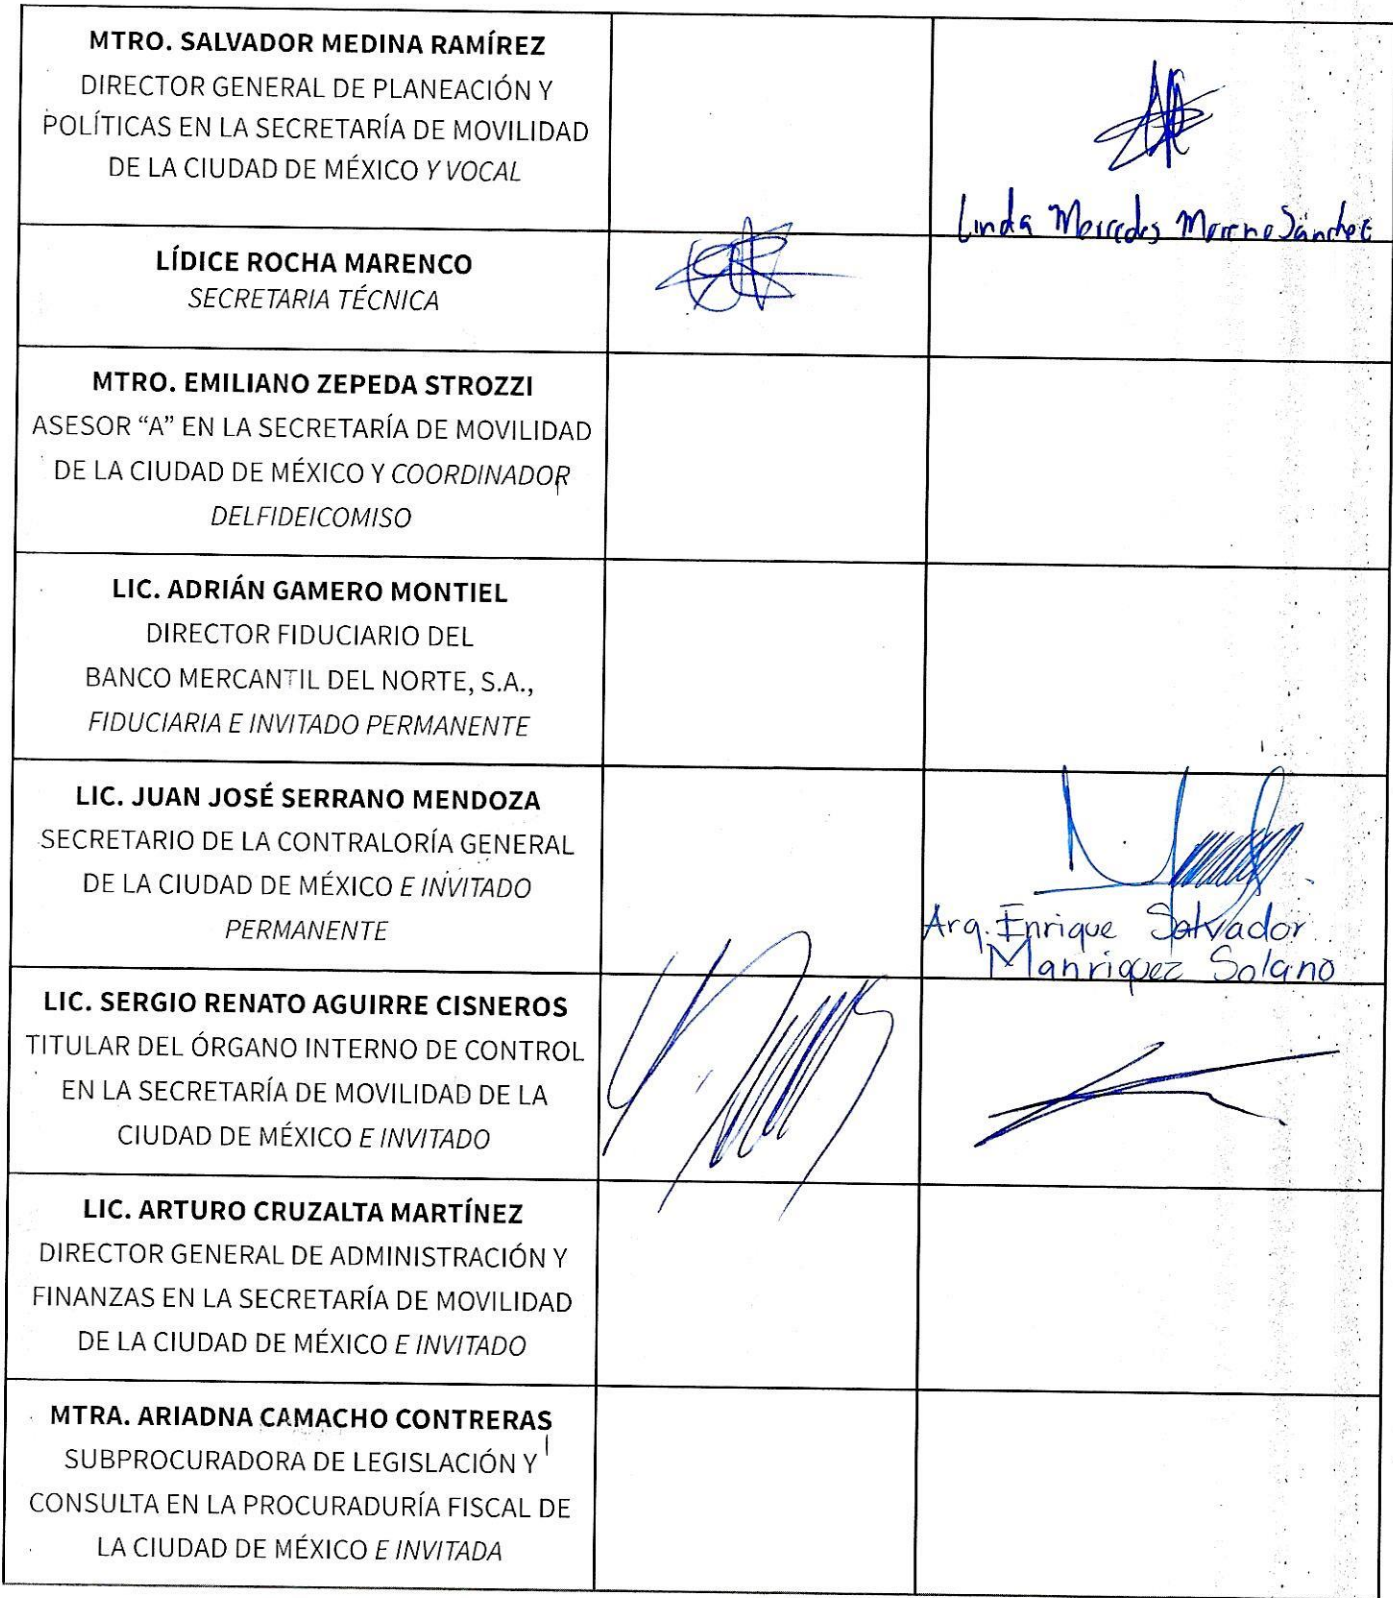 MTRO. SALVADOR MEDINA RAMÍREZ
DIRECTOR GENERAL DE PLANEACIÓN Y
POLÍTICAS EN LA SECRETARÍA DE MOVILIDAD
DE LA CIUDAD DE MÉXICO Y VOCAL
Linda Mercedes Moreno Sánchez
LÍDICE ROCHA MARENCO
SECRETARIA TÉCNICA
MTRO. EMILIANO ZEPEDA STROZZI
ASESOR “A” EN LA SECRETARÍA DE MOVILIDAD
DE LA CIUDAD DE MÉXICO Y COORDINADOR
DELFIDEICOMISO
LIC. ADRIÁN GAMERO MONTIEL
DIRECTOR FIDUCIARIO DEL
BANCO MERCANTIL DEL NORTE, S.A.,
FIDUCIARIA E INVITADO PERMANENTE
LIC. JUAN JOSÉ SERRANO MENDOZA
SECRETARIO DE LA CONTRALORÍA GENERAL
DE LA CIUDAD DE MÉXICO E INVITADO
PERMANENTE
Arq. Enrique Salvador
Manriquez Solano
LIC. SERGIO RENATO AGUIRRE CISNEROS
TITULAR DEL ÓRGANO INTERNO DE CONTROL
EN LA SECRETARÍA DE MOVILIDAD DE LA
CIUDAD DE MÉXICO E INVITADO
LIC. ARTURO CRUZALTA MARTÍNEZ
DIRECTOR GENERAL DE ADMINISTRACIÓN Y
FINANZAS EN LA SECRETARÍA DE MOVILIDAD
DE LA CIUDAD DE MÉXICO E INVITADO
MTRA. ARIADNA CAMACHO CONTRERAS
SUBPROCURADORA DE LEGISLACIÓN Y
CONSULTA EN LA PROCURADURÍA FISCAL DE
LA CIUDAD DE MÉXICO E INVITADA